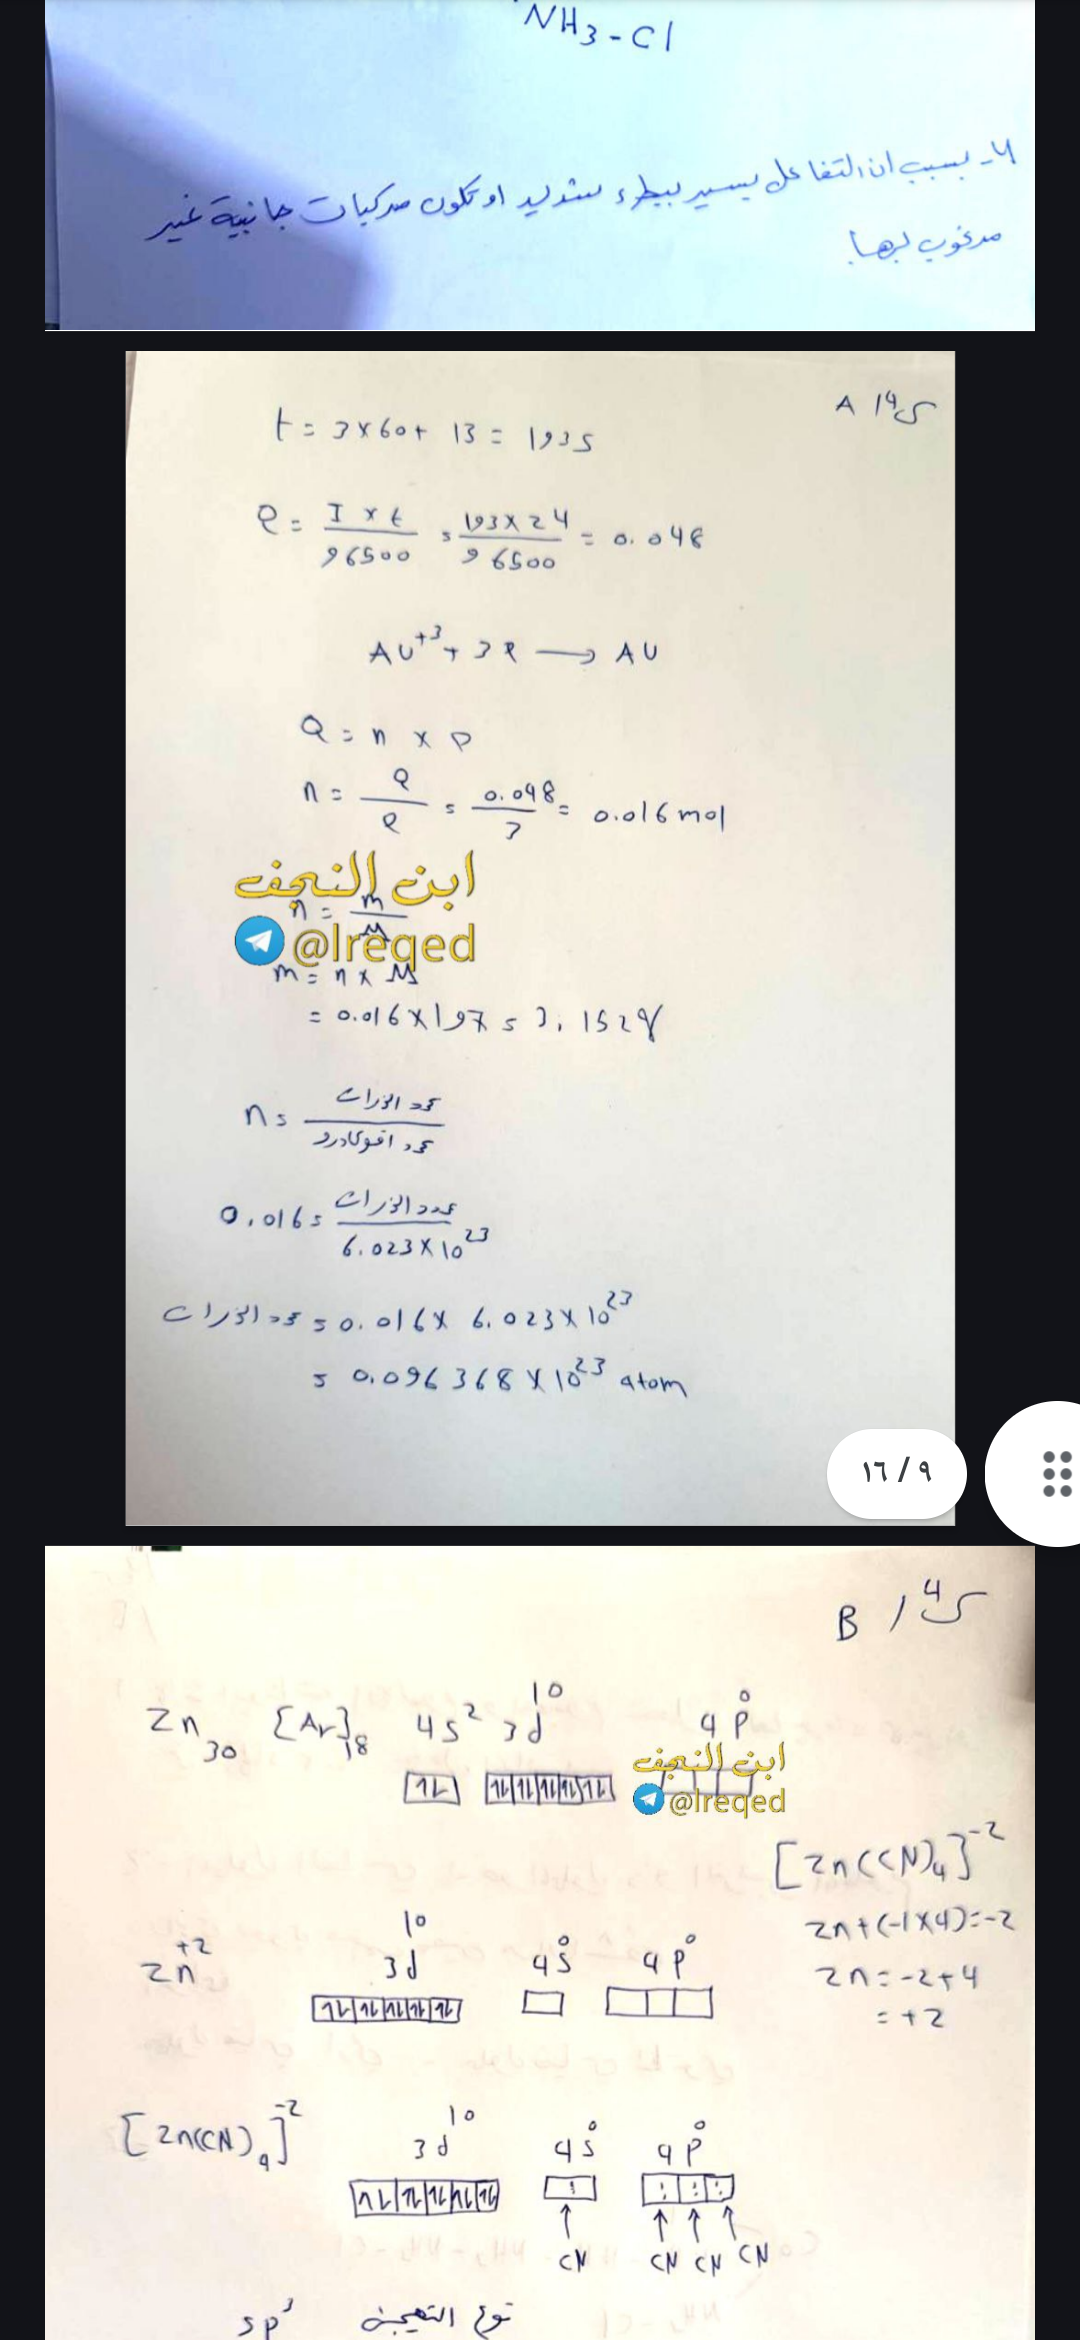 NH3-Cl
٧- بسبب ان التفاعل يسير ببطء شديد او تكون مركبات جانبية غير
مرغوب بها.
س4/ A
t = 3x60+ 13 = 193s
Q = I x t / 96500 = 193x24 / 96500 = 0.048
AU+3 + 3e → AU
Q = n x e
n = Q / e = 0.048 / 3 = 0.016 mol
ابن النجف
n = m / M
@Ireqed
m = n x M
= 0.016x197 = 3.152g
n = عدد الذرات / عدد افوكادرو
0.016 = عدد الذرات / 6.023x10^23
عدد الذرات = 0.016x 6.023x10^23
= 0.096368x10^23 atom
١٦ / ٩
س4/ B
Zn30 [Ar]18 4s2 3d10 4p0
ابن النجف
@Ireqed
[Zn(CN)4]-2
Zn+(-1x4)=-2
Zn+2 3d10 4s0 4p0
Zn=-2+4
=+2
[Zn(CN)4]-2 3d10 4s0 4p0
CN CN CN CN
نوع التهجين sp3